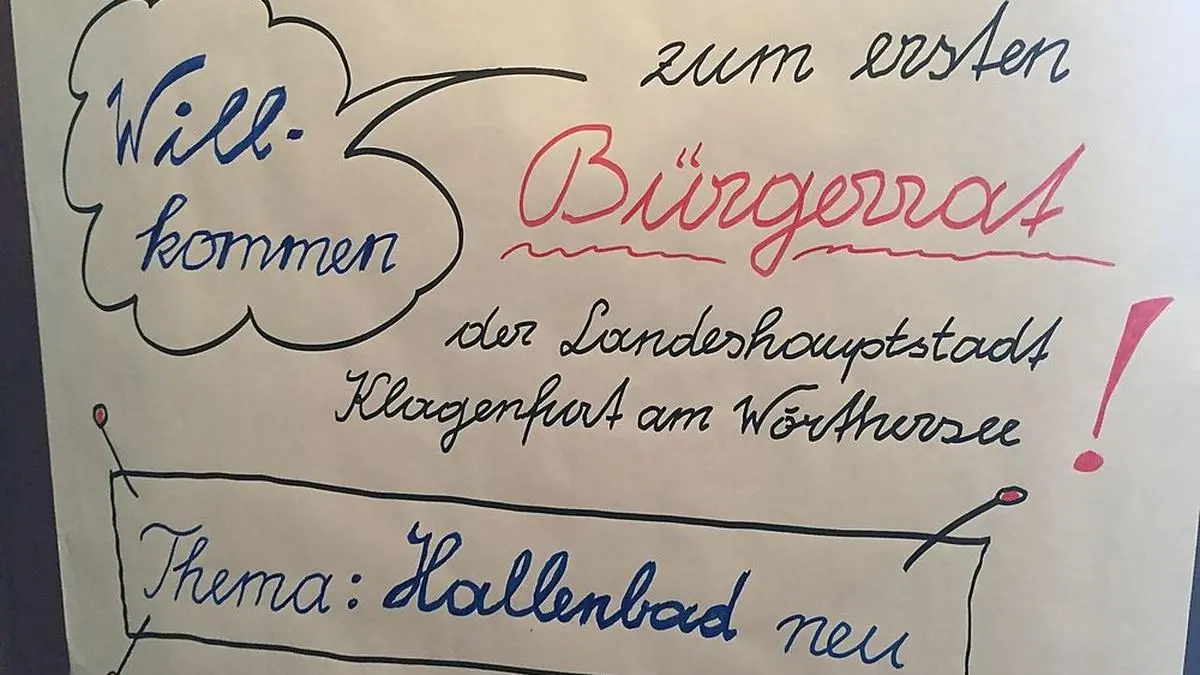 Will-
kommen
zum ersten
Bürgerrat
der Landeshauptstadt
Klagenfurt am Wörthersee!
Thema: Hallenbad neu